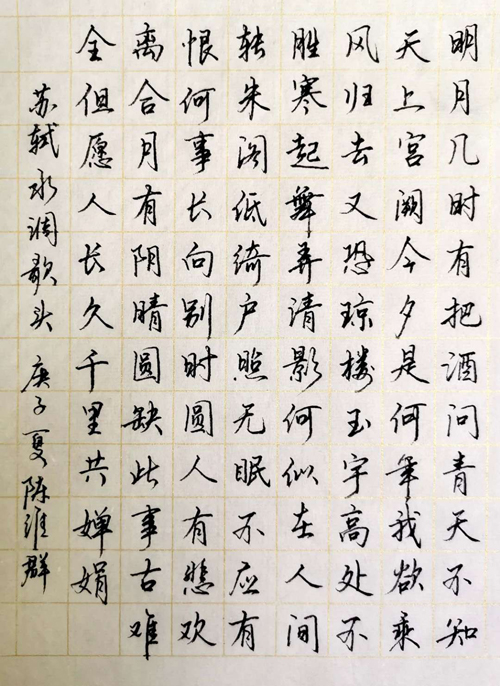 明月几时有把酒问青天不知
天上宫阙今夕是何年我欲乘
风归去又恐琼楼玉宇高处不
胜寒起舞弄清影何似在人间
转朱阁低绮户照无眠不应有
恨何事长向别时圆人有悲欢
离合月有阴晴圆缺此事古难
全但愿人长久千里共婵娟
苏轼水调歌头 庚子夏陈维群